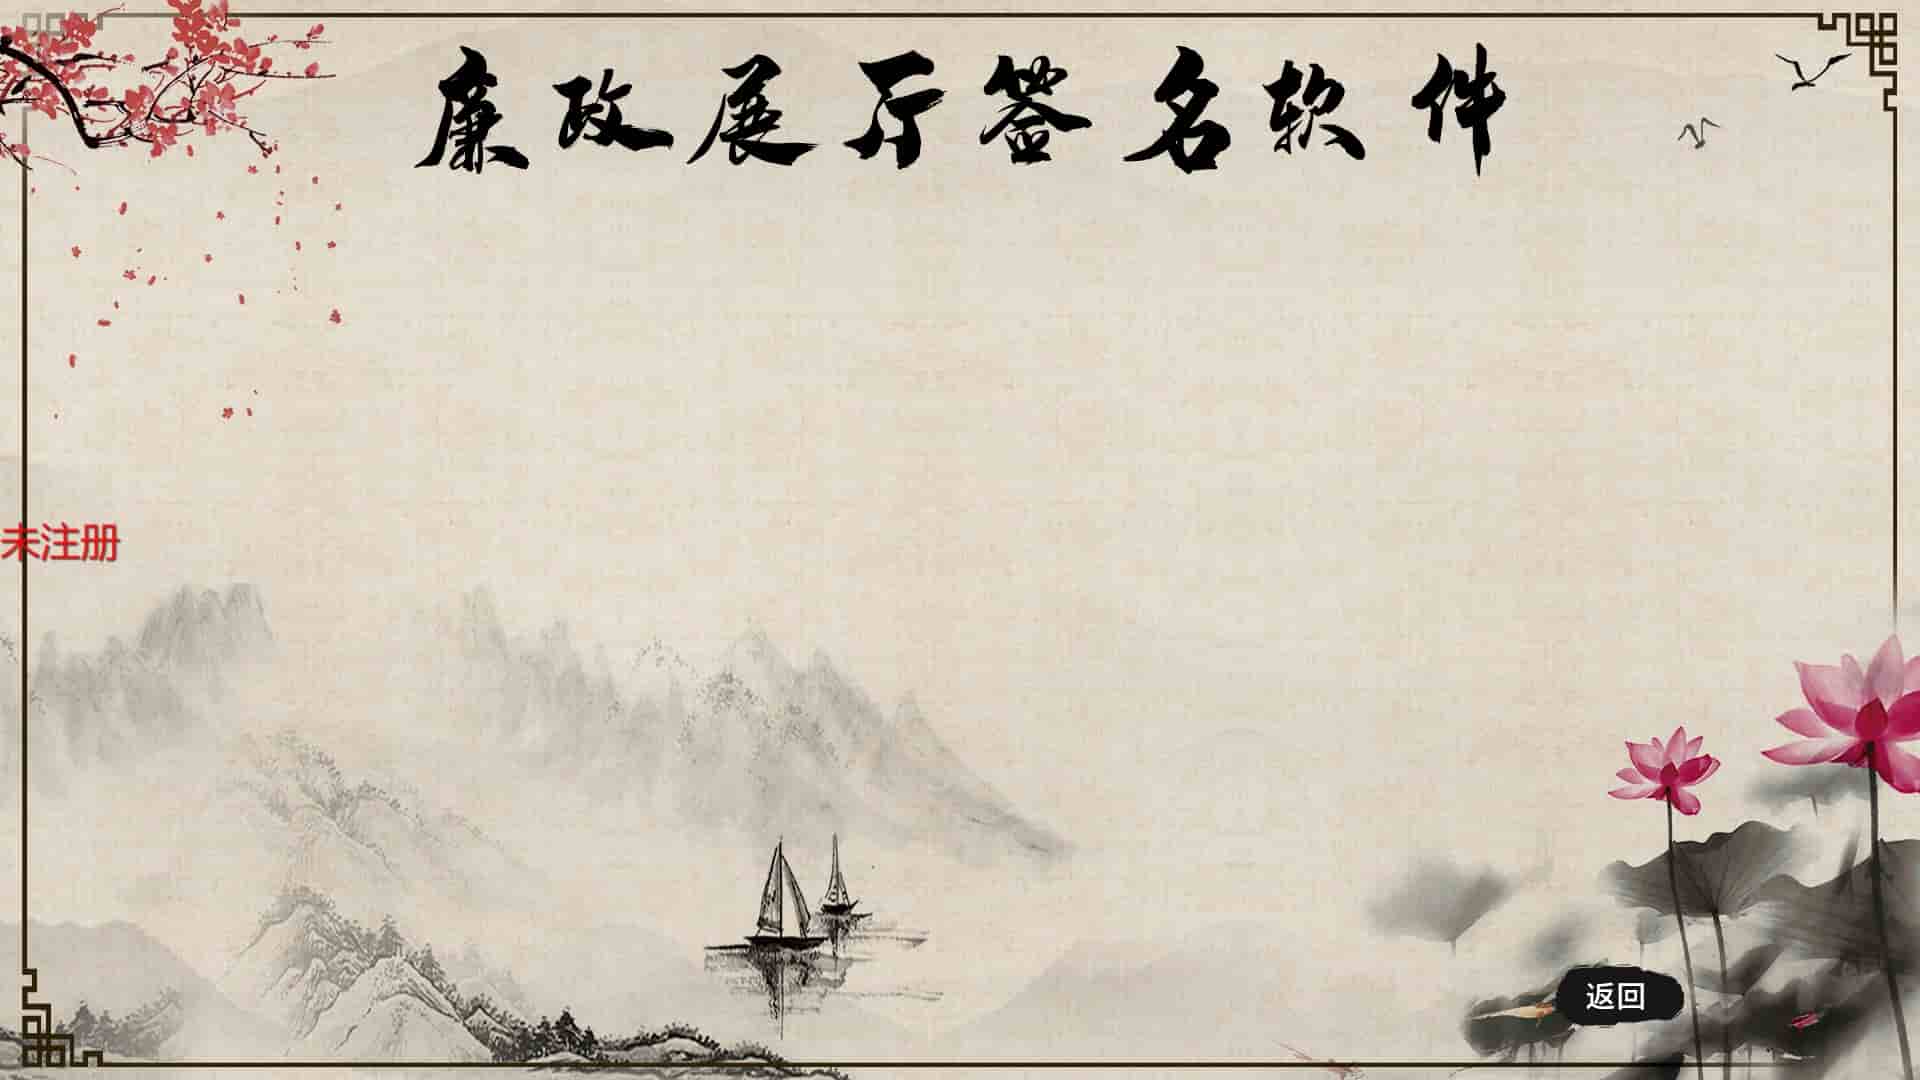 廉政展厅签名软件
未注册
返回